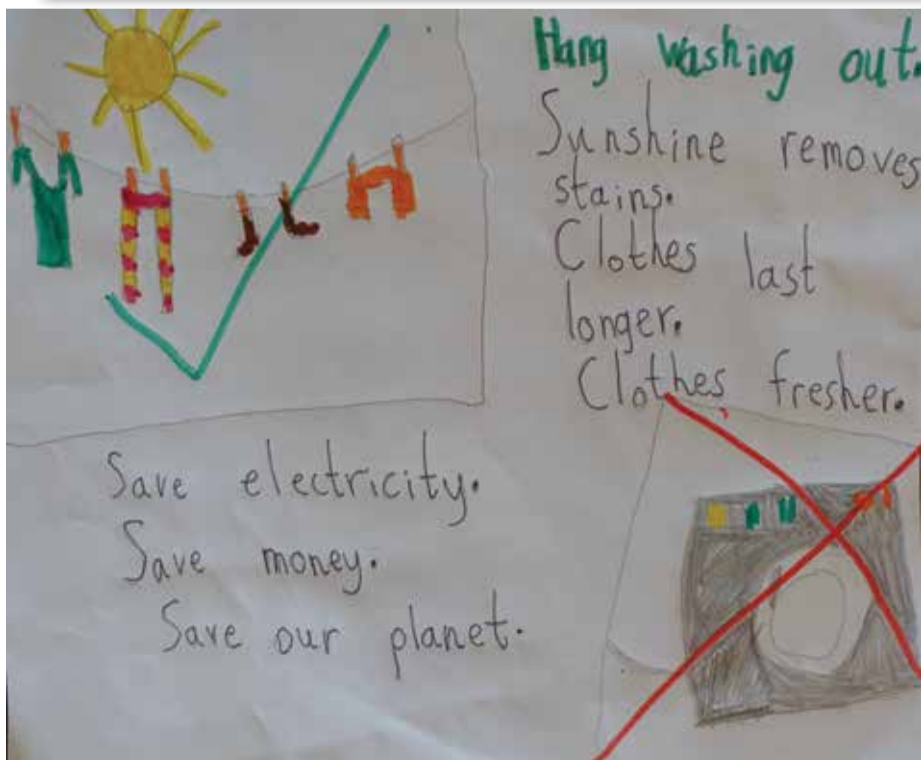 Hang washing out.
Sunshine removes
stains.
Clothes last
longer.
Clothes fresher.
Save electricity.
Save money.
Save our planet.